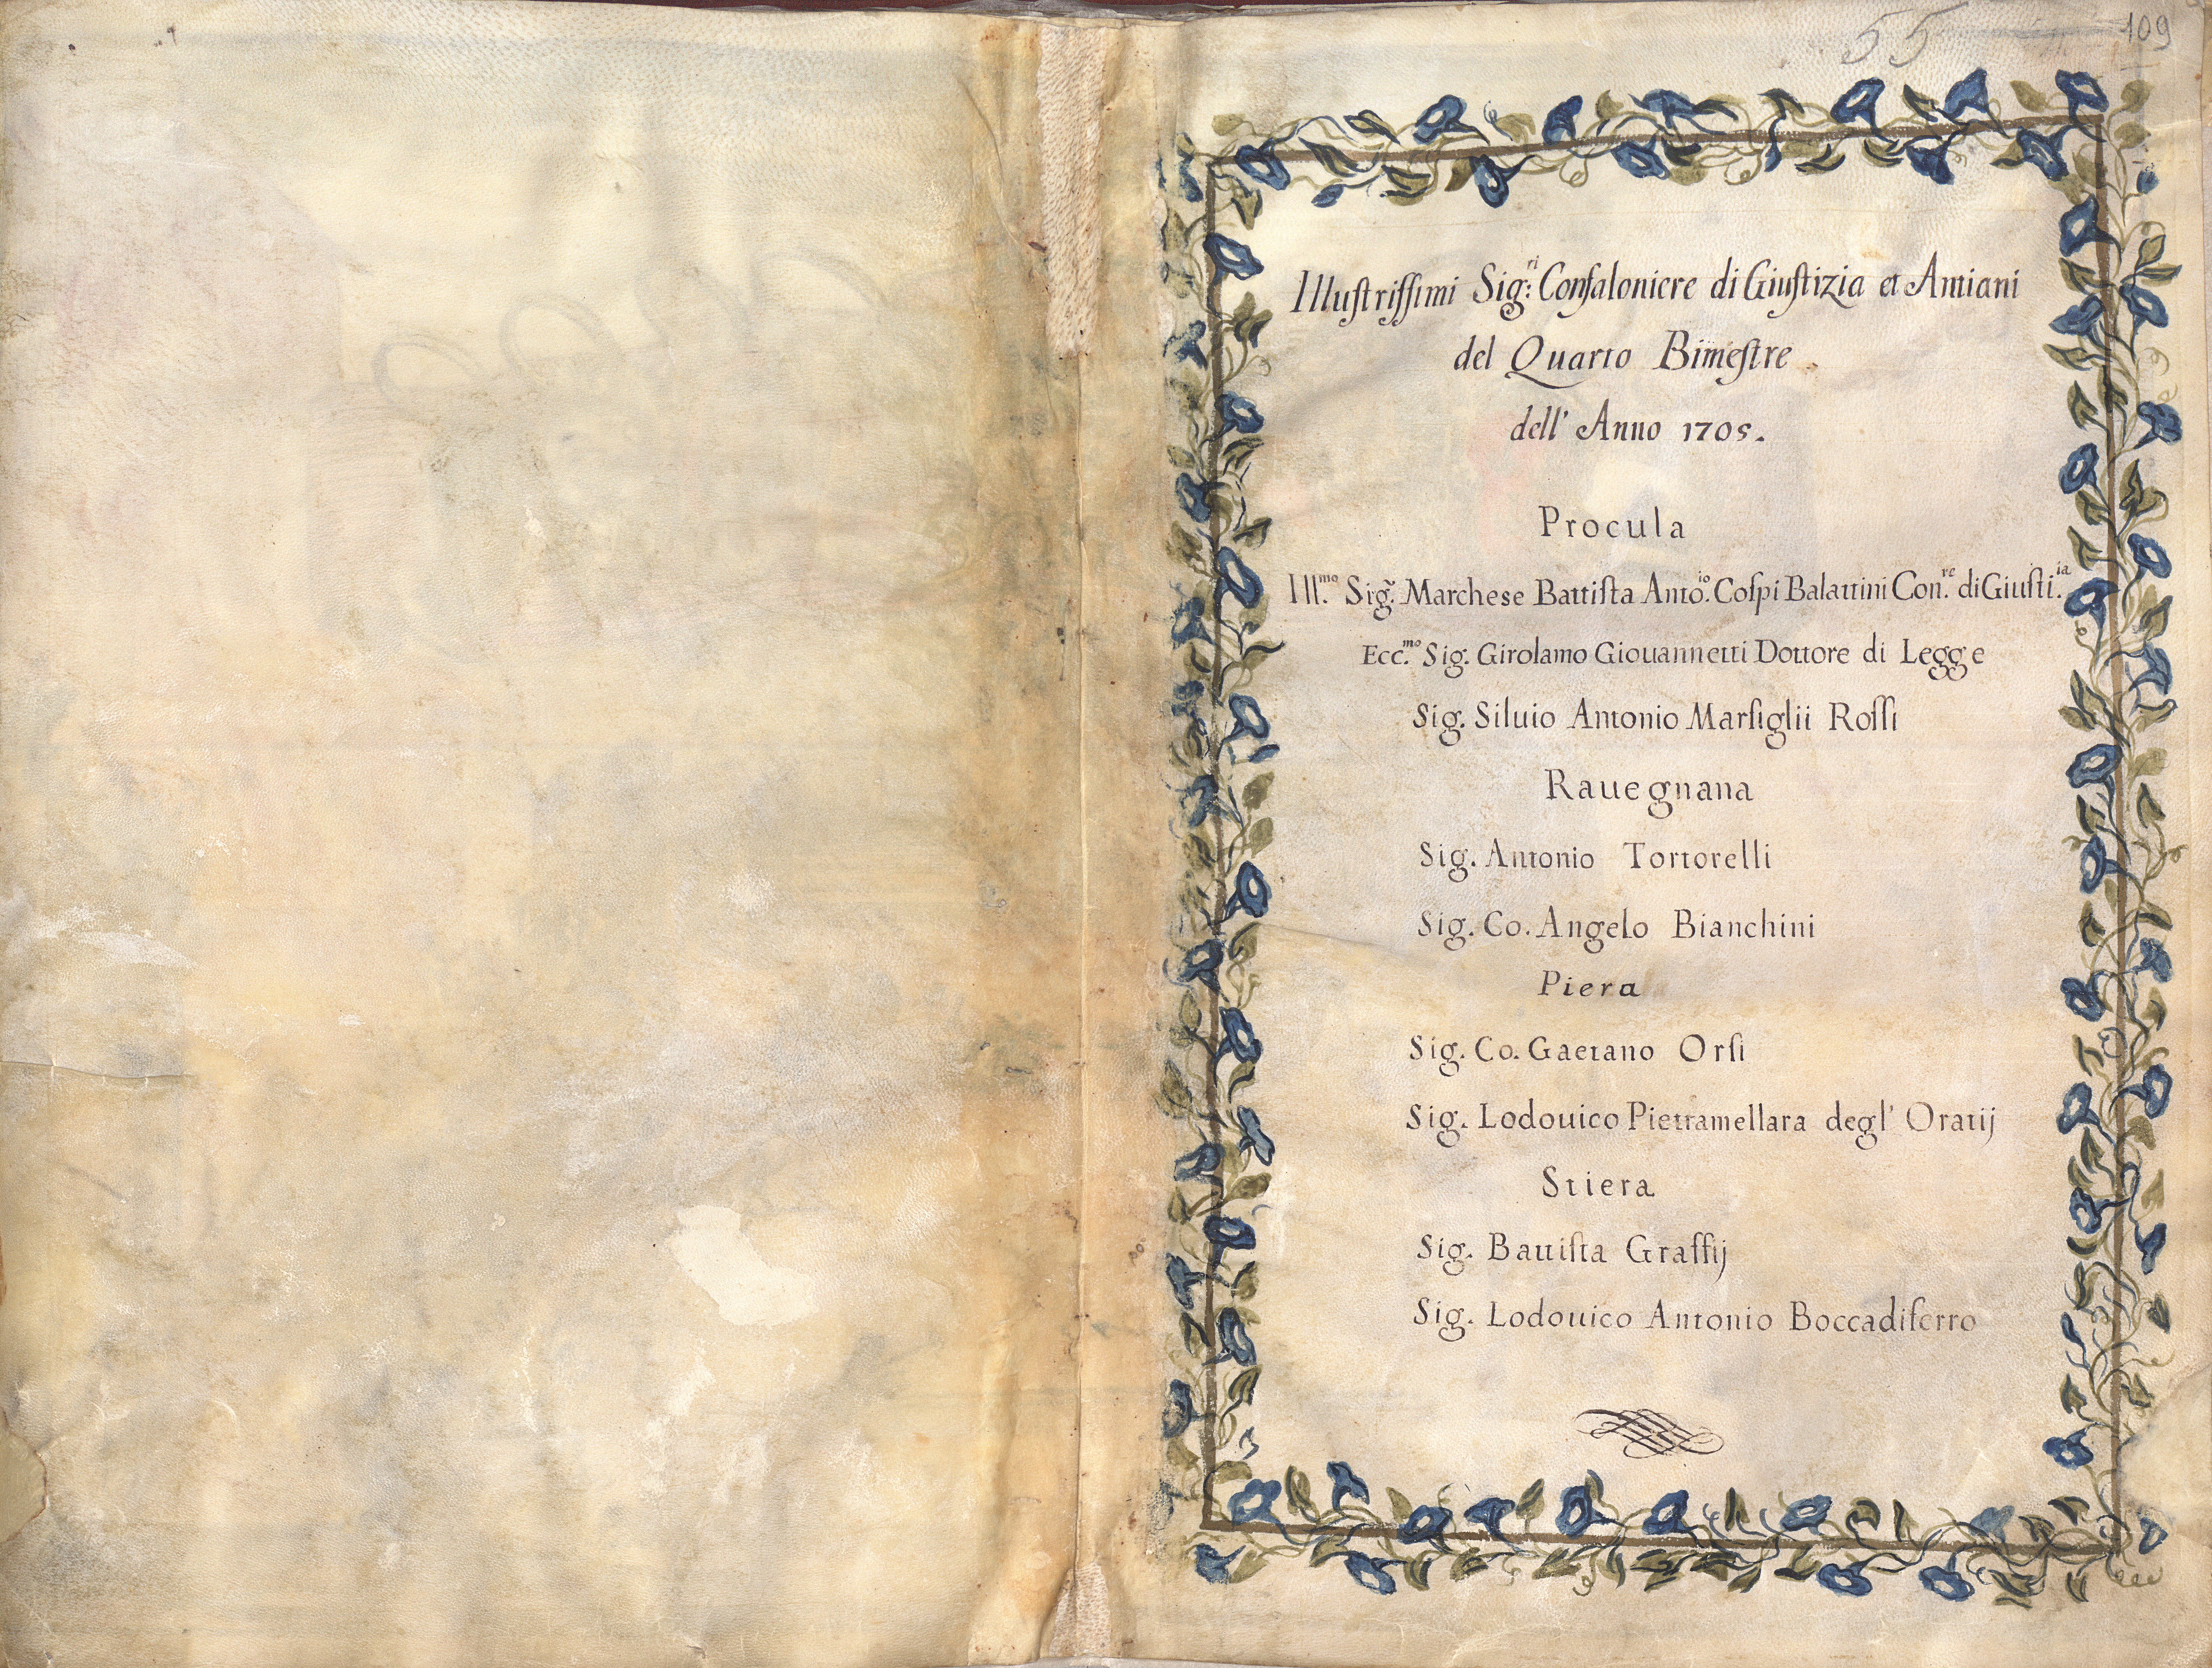 55 109
Illuſtriſſimi Sig:ri Confaloniere di Giuſtizia et Antiani
del Quarto Bimeſtre
dell' Anno 1705.
Procula
Ill.mo Sig.r Marchese Battiſta Anto.io Coſpi Balattini Con.re di Giuſti.ia
Ecc.mo Sig. Girolamo Giouannetti Dottore di Legge
Sig. Siluio Antonio Marſiglii Roſſi
Rauegnana
Sig. Antonio Tortorelli
Sig. Co. Angelo Bianchini
Piera
Sig. Co. Gaetano Orſi
Sig. Lodouico Pietramellara degl' Oratij
Stiera
Sig. Battiſta Graſſij
Sig. Lodouico Antonio Boccadiferro